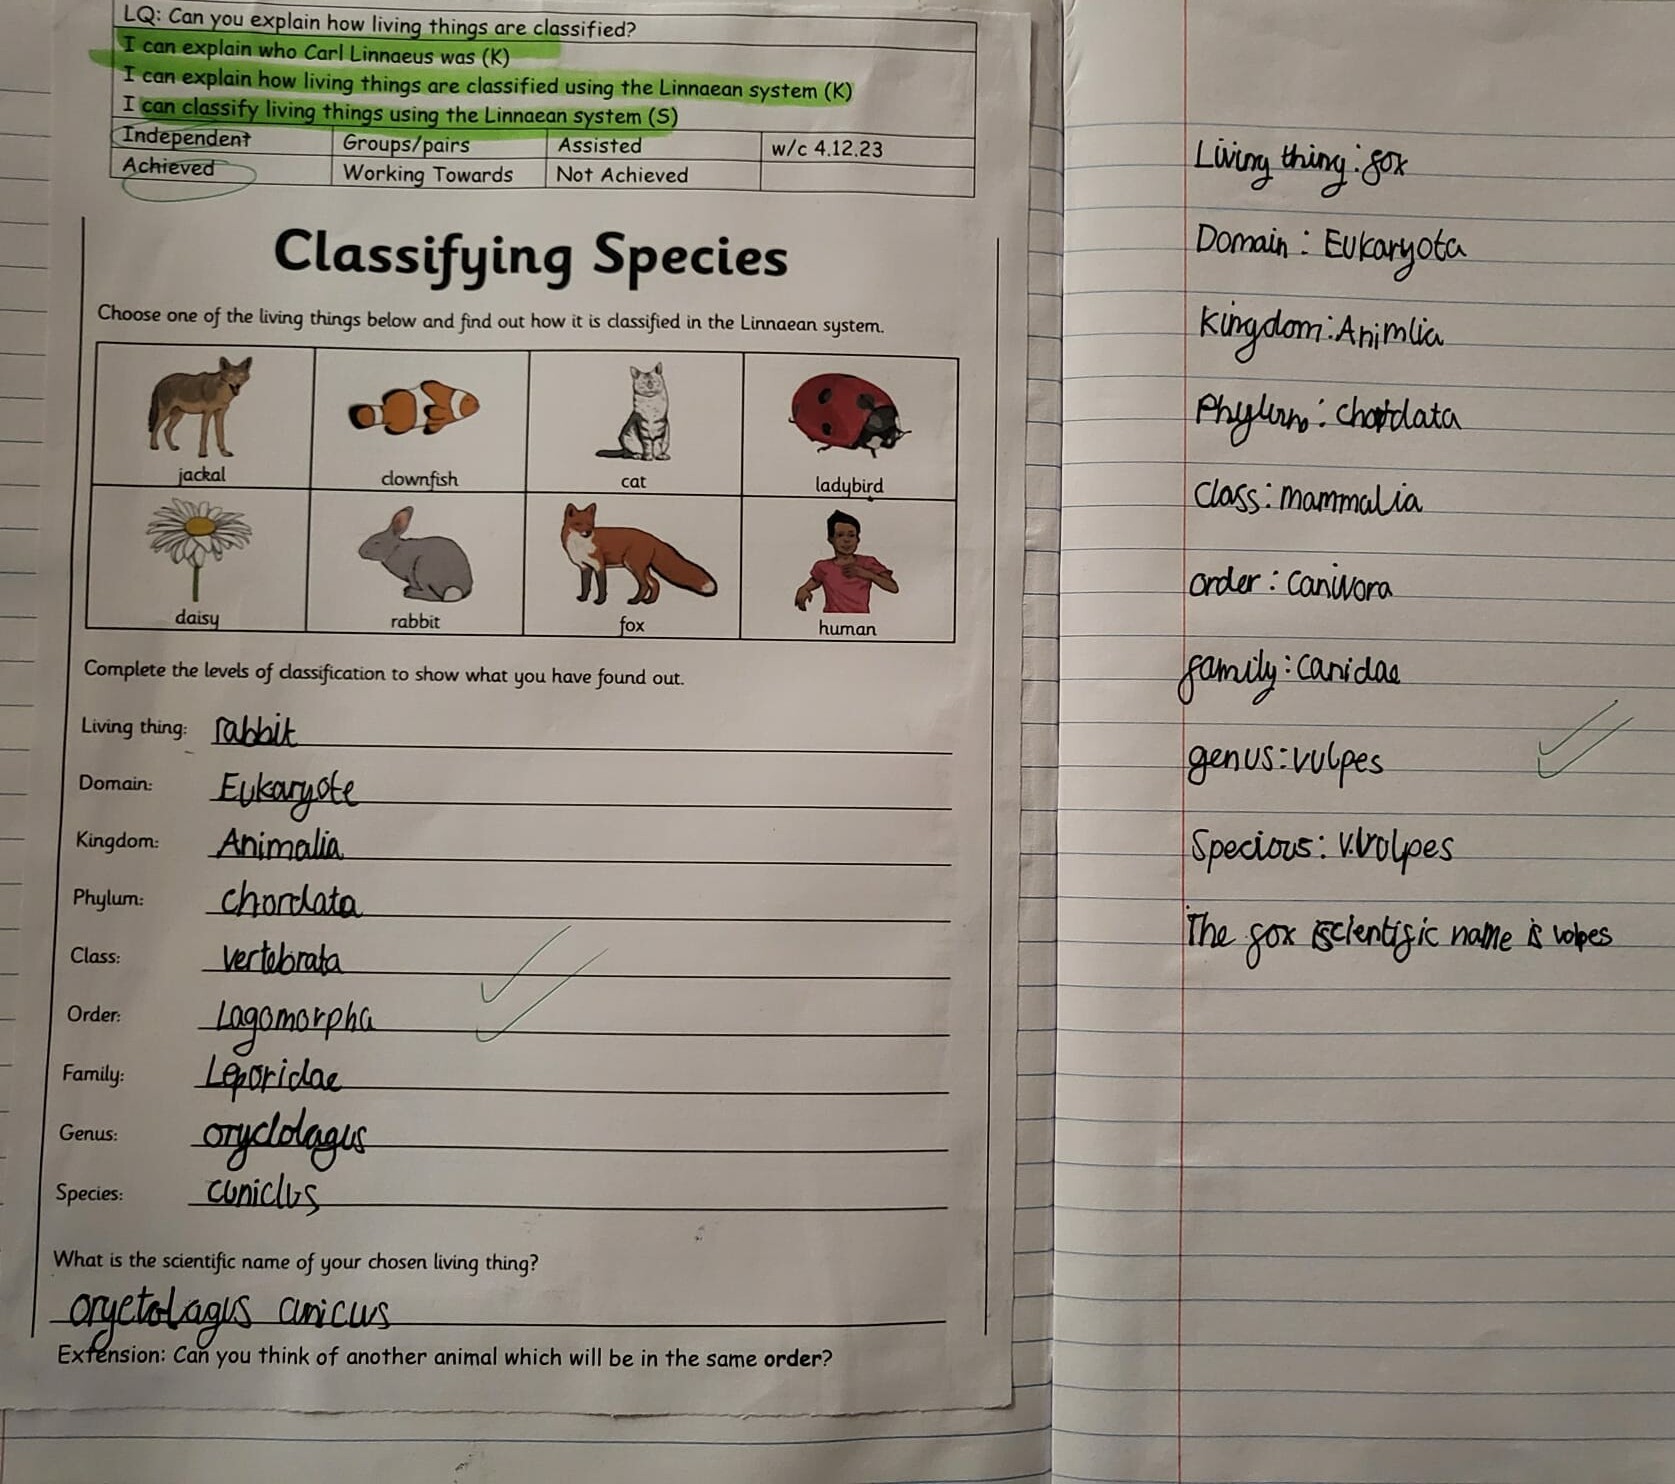 LQ: Can you explain how living things are classified?
I can explain who Carl Linnaeus was (K)
I can explain how living things are classified using the Linnaean system (K)
I can classify living things using the Linnaean system (S)
Independent Groups/pairs Assisted w/c 4.12.23
Achieved Working Towards Not Achieved
Classifying Species
Choose one of the living things below and find out how it is classified in the Linnaean system.
jackal clownfish cat ladybird
daisy rabbit fox human
Complete the levels of classification to show what you have found out.
Living thing: rabbit
Domain: Eukaryote
Kingdom: Animalia
Phylum: chordata
Class: vertebrata
Order: Lagomorpha
Family: Leporidae
Genus: oryclolagus
Species: cuniclus
What is the scientific name of your chosen living thing?
oryctolagus cunicus
Extension: Can you think of another animal which will be in the same order?
Living thing: fox
Domain: Eukaryota
Kingdom: Animlia
Phylum: chordata
Class: mammalia
order: canivora
family: canidae
genus: vulpes
Specious: v.vulpes
The fox scientific name is volpes